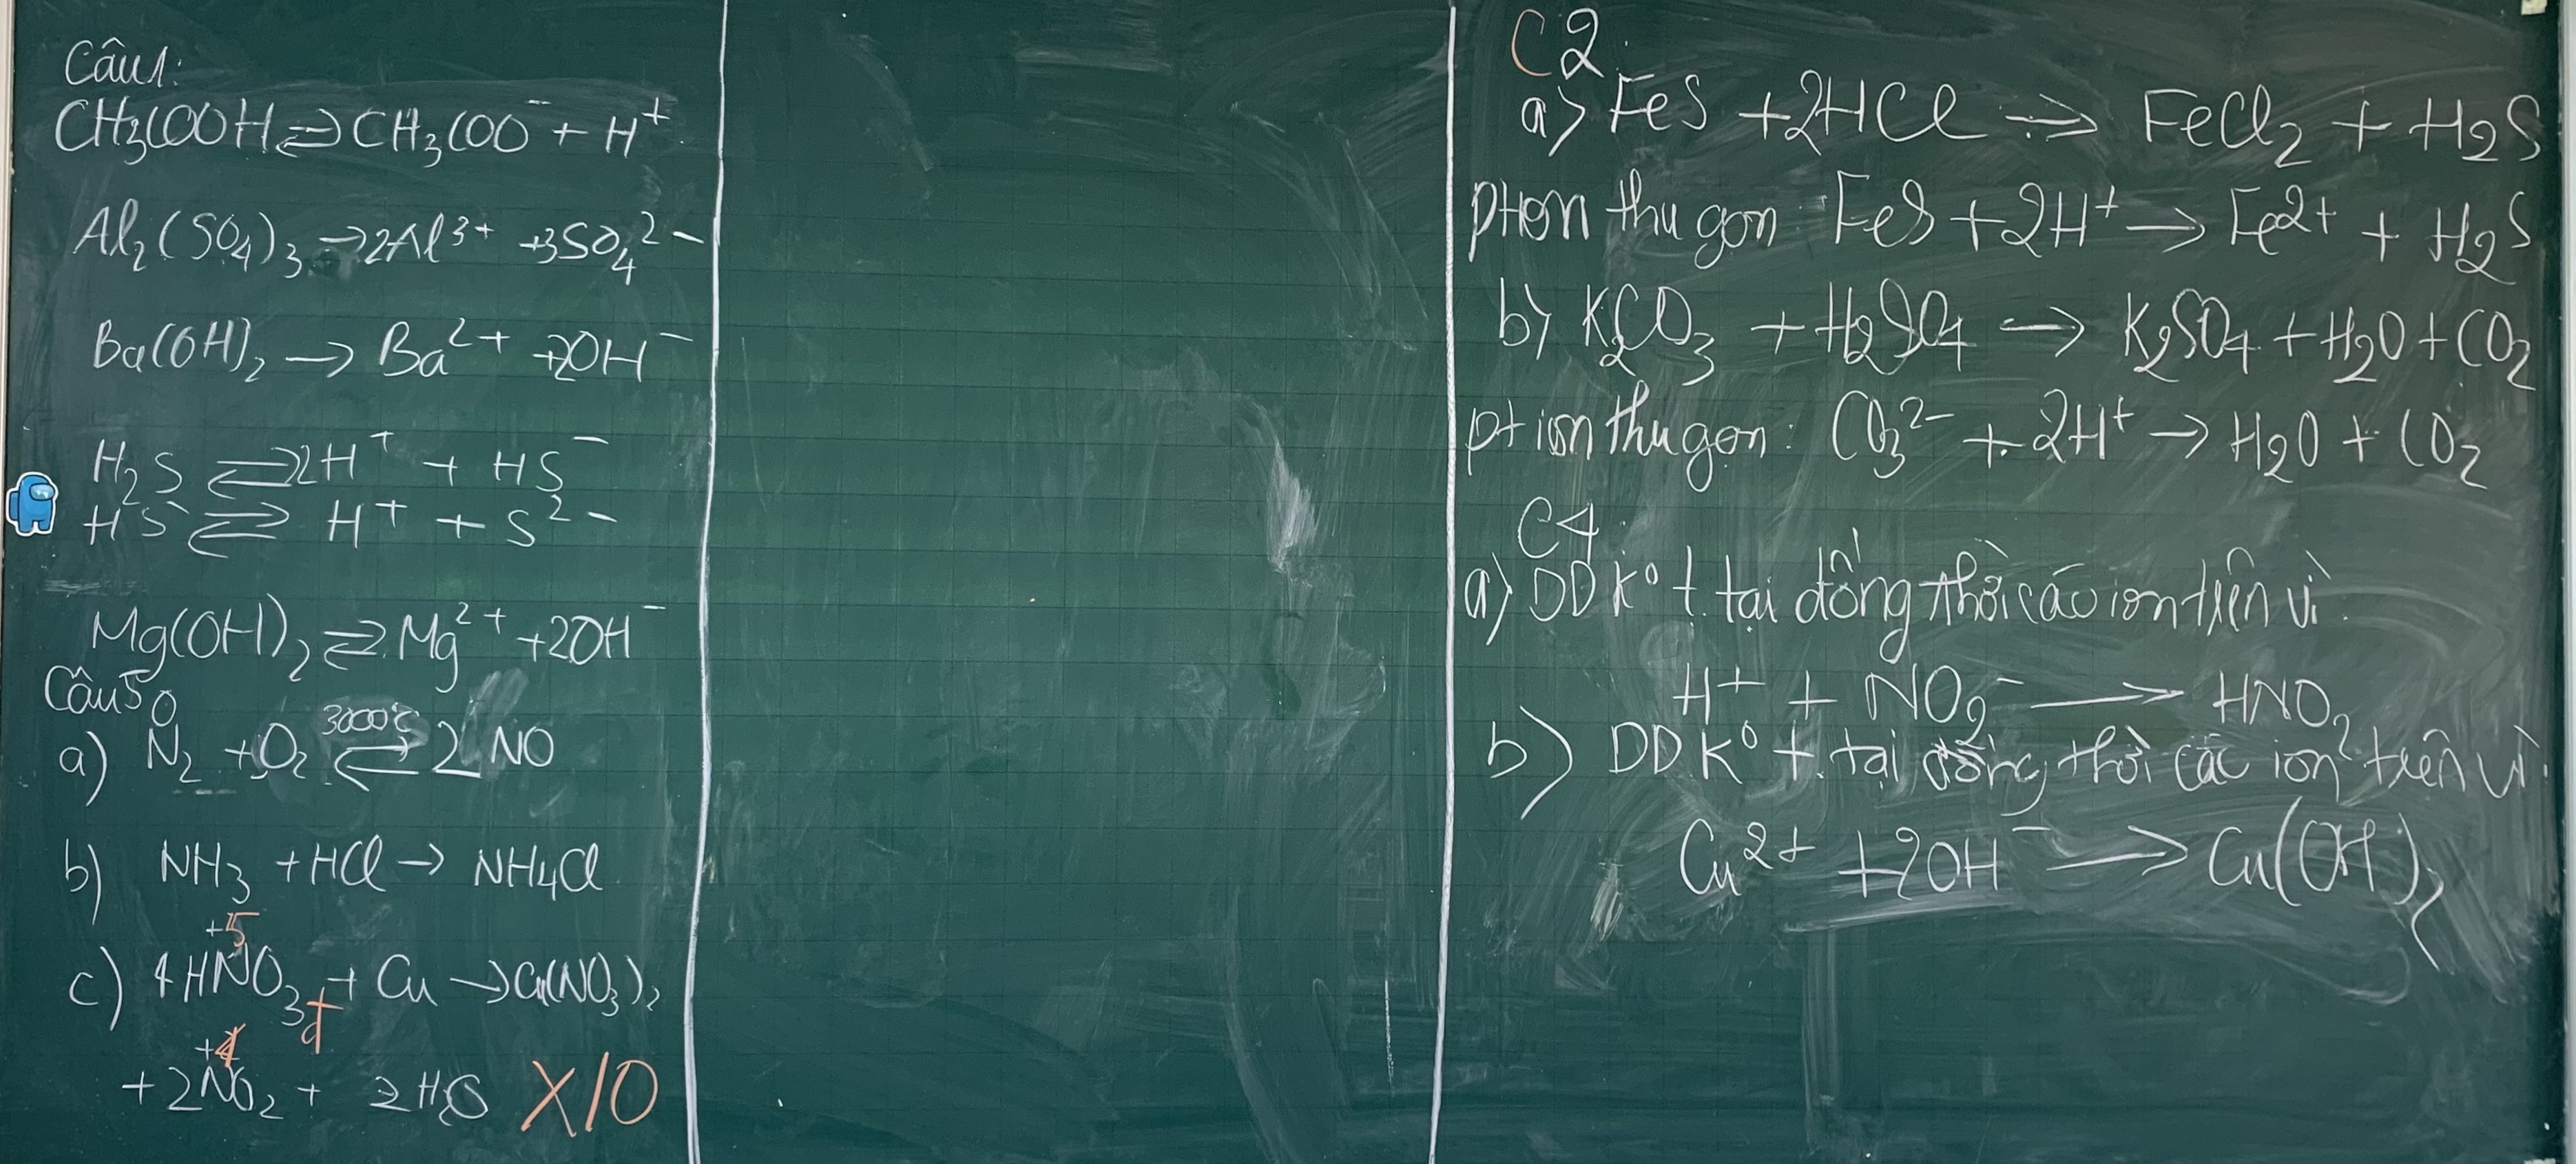 Câu 1:
CH₃COOH ⇌ CH₃COO⁻ + H⁺
Al₂(SO₄)₃ → 2Al³⁺ + 3SO₄²⁻
Ba(OH)₂ → Ba²⁺ + 2OH⁻
H₂S ⇌ 2H⁺ + HS⁻
HS⁻ ⇌ H⁺ + S²⁻
Mg(OH)₂ ⇌ Mg²⁺ + 2OH⁻
Câu 5
0
a) N₂ + O₂ ⇌ 2NO
3000°C
b) NH₃ + HCl → NH₄Cl
+5
c) 4HNO₃đ + Cu → Cu(NO₃)₂
+4
+ 2NO₂ + 2H₂O X10
C2:
a) FeS + 2HCl → FeCl₂ + H₂S
pt ion thu gọn: FeS + 2H⁺ → Fe²⁺ + H₂S
b) K₂CO₃ + H₂SO₄ → K₂SO₄ + H₂O + CO₂
pt ion thu gọn: CO₃²⁻ + 2H⁺ → H₂O + CO₂
C4:
a) DD K⁰ t.tại đồng thời các ion trên vì:
H⁺ + NO₂⁻ → HNO₂
b) DD K⁰ t.tại đồng thời các ion trên vì:
Cu²⁺ + 2OH⁻ → Cu(OH)₂